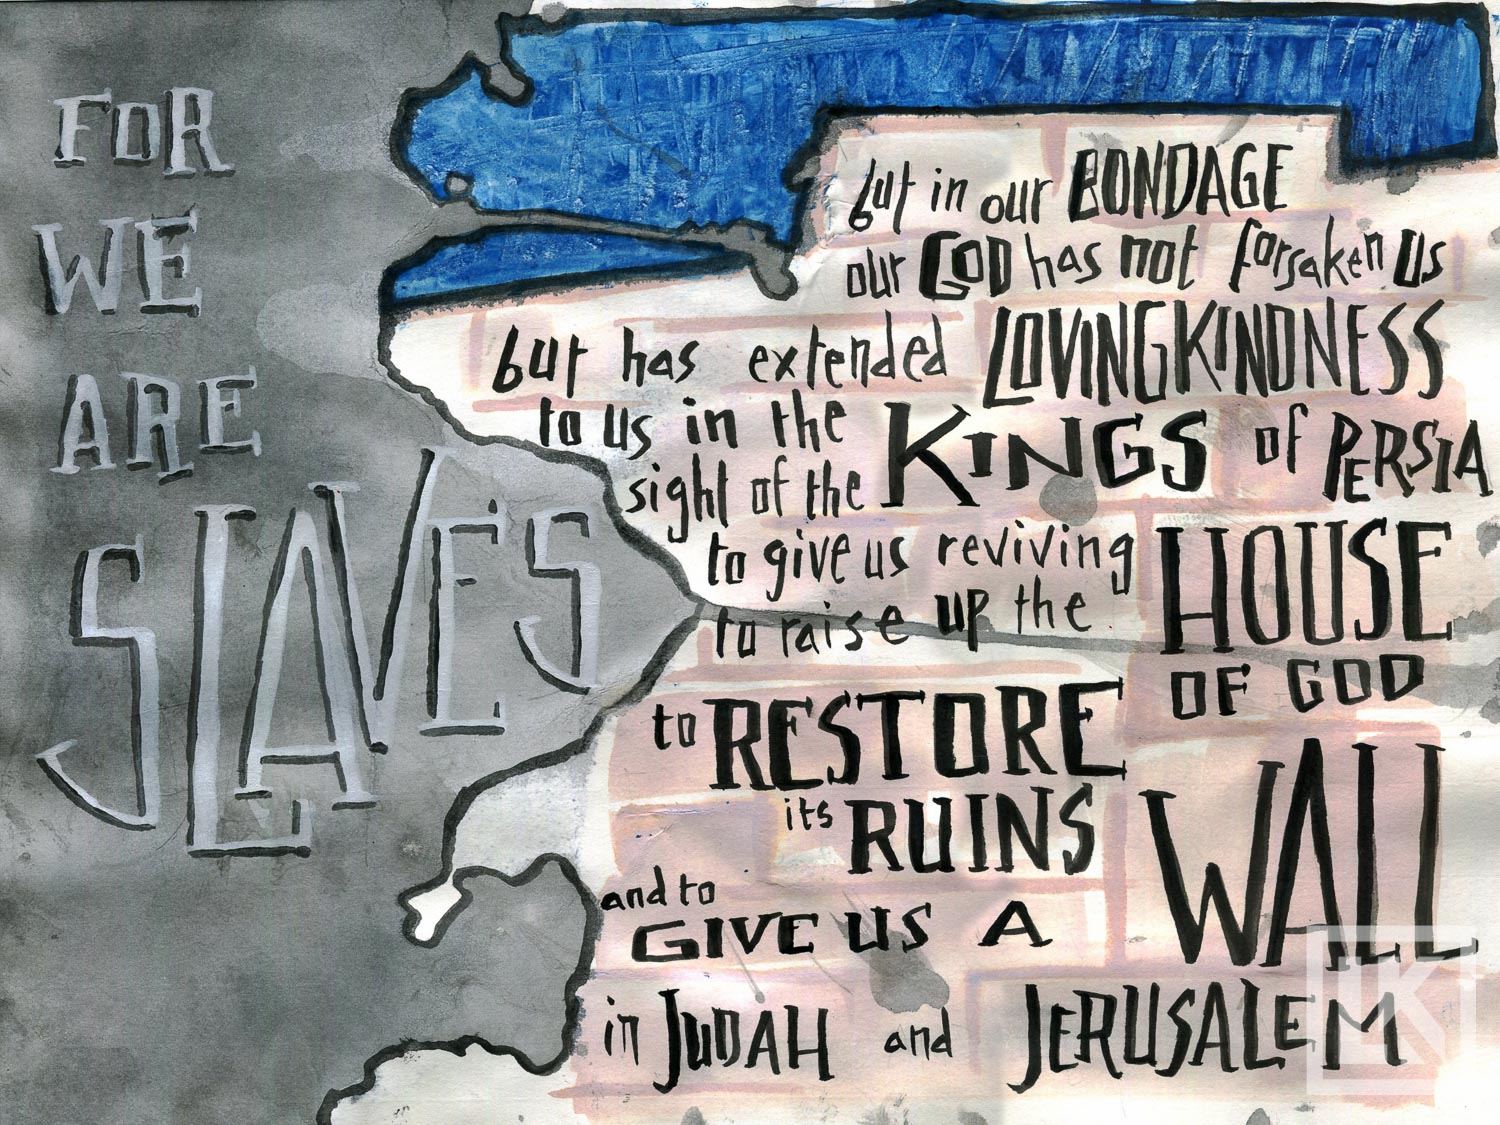 FOR
WE
ARE
SLAVES
but in our BONDAGE
our GOD has not forsaken us
but has extended LOVINGKINDNESS
to us in the KINGS of PERSIA
sight of the
to give us reviving
to raise up the HOUSE
OF GOD
to RESTORE
its RUINS
and to
GIVE US A WALL
in JUDAH and JERUSALEM
LK